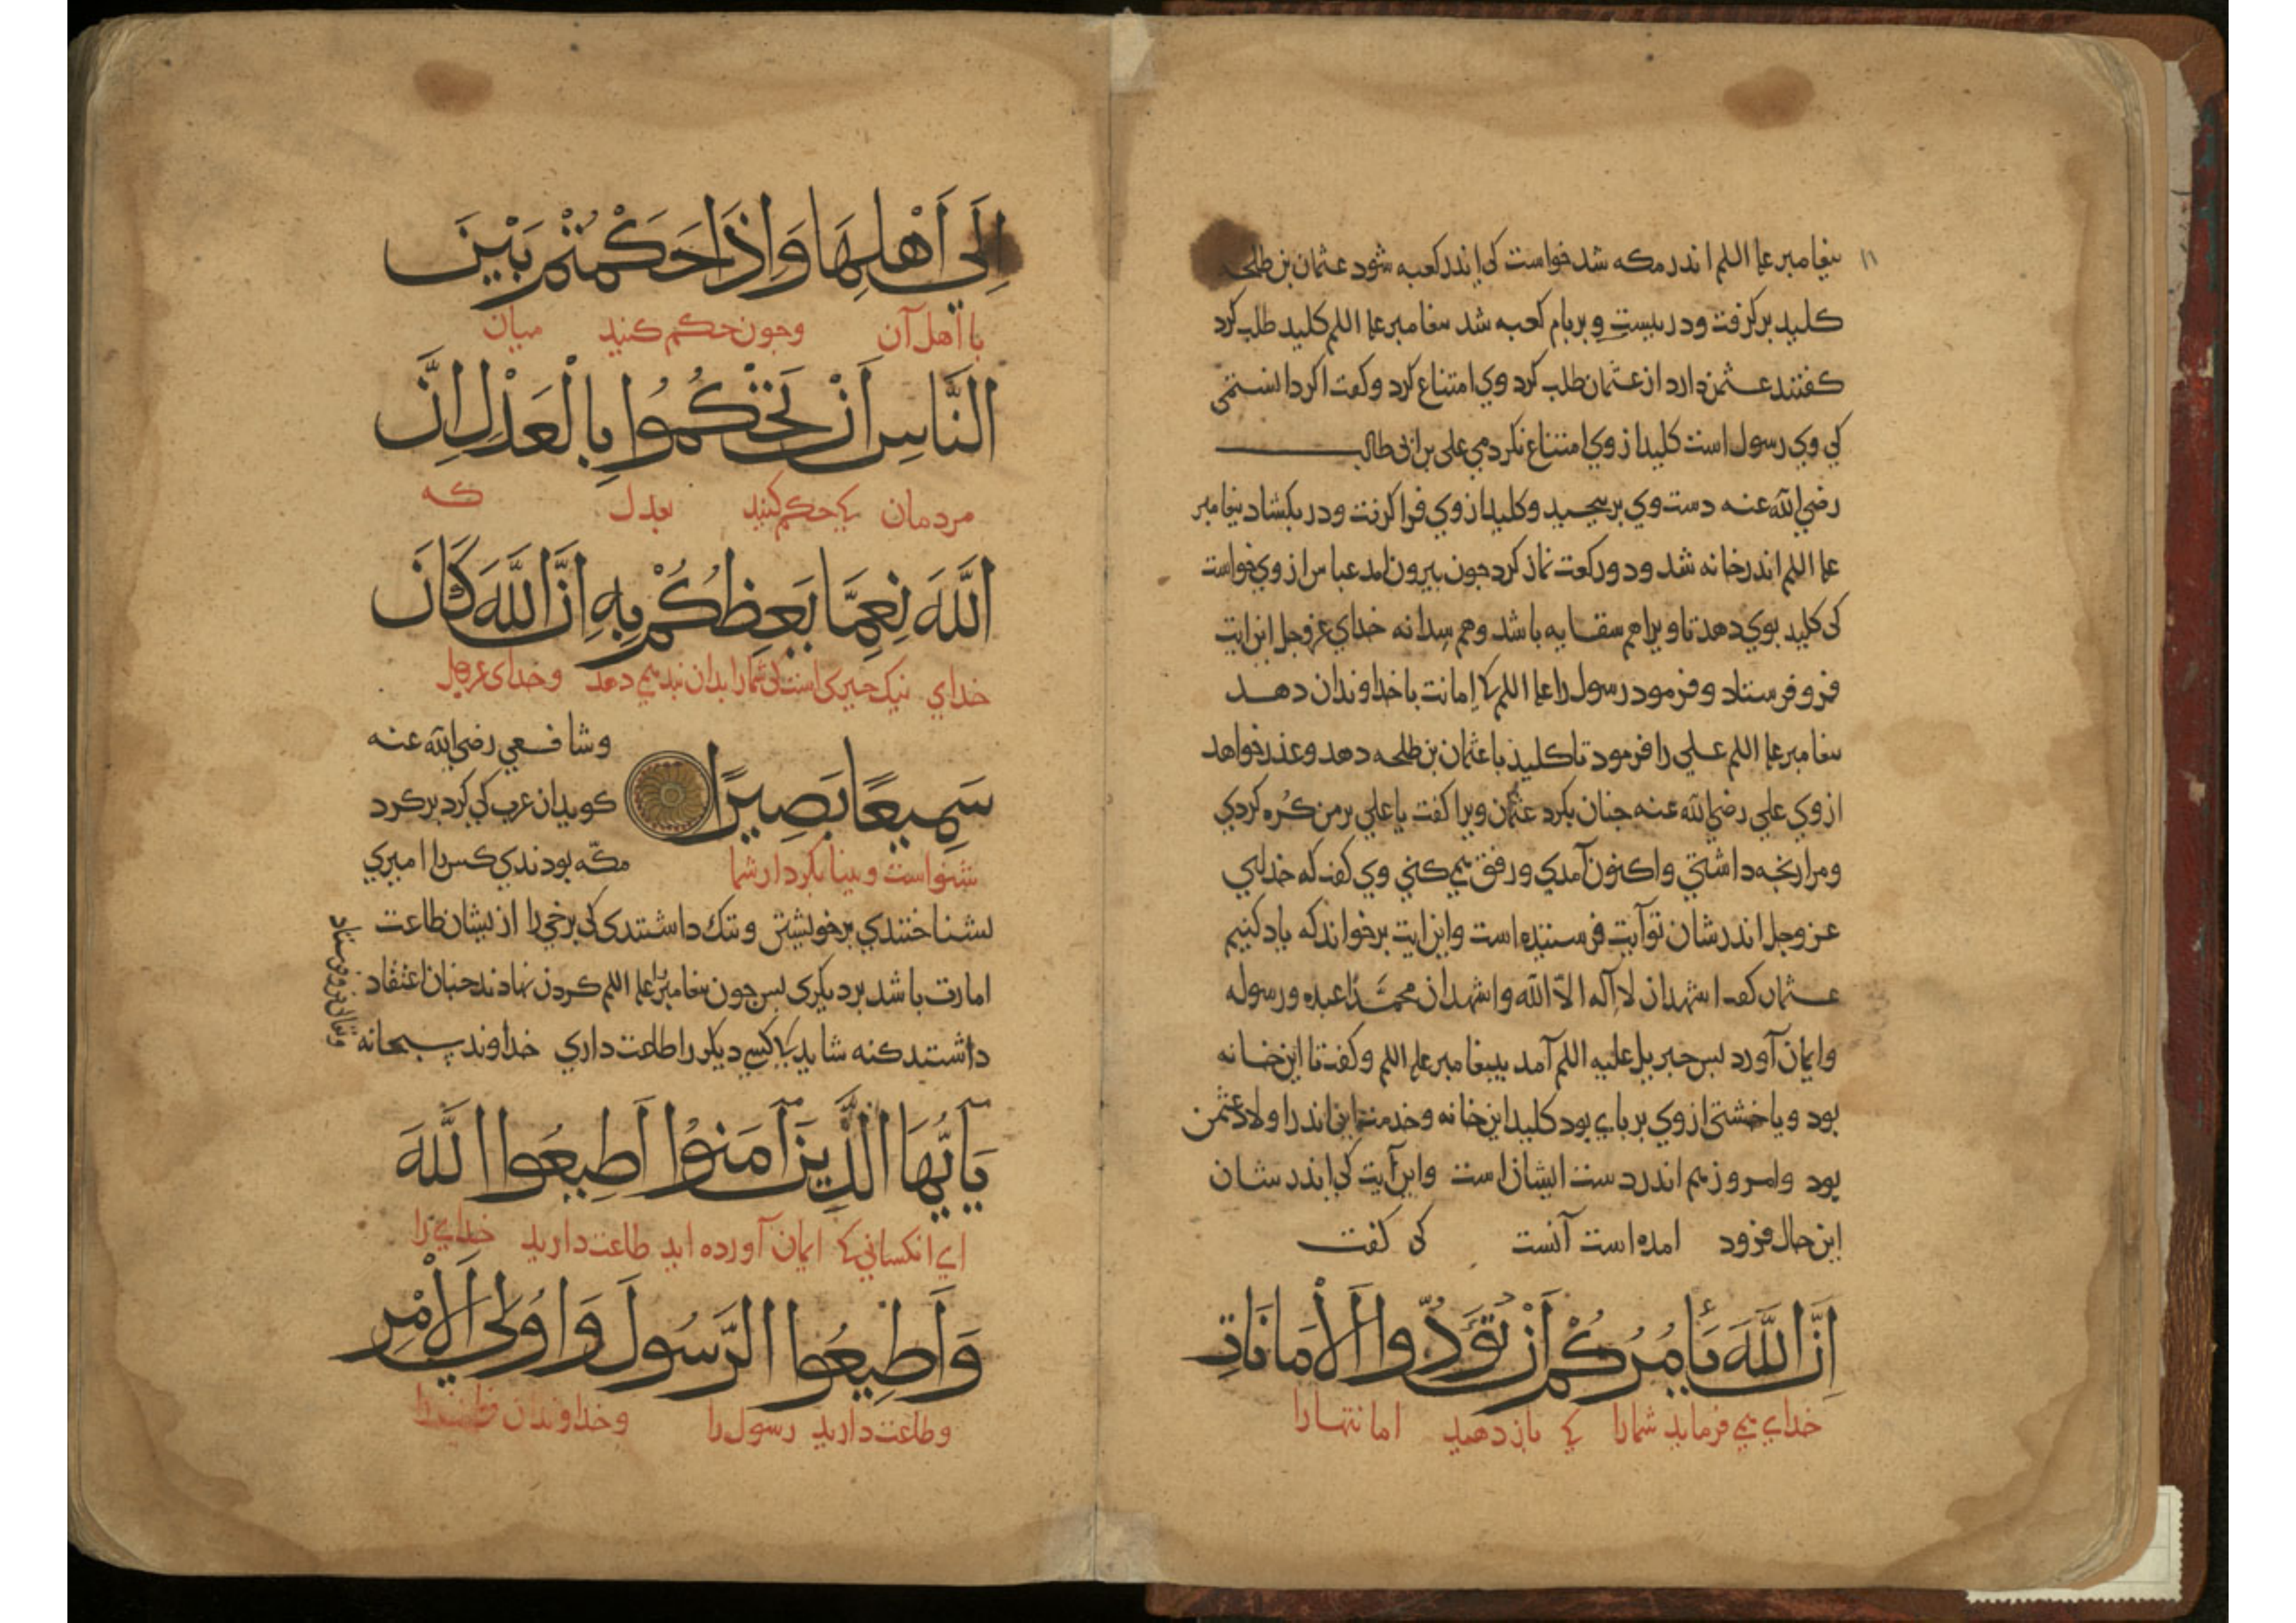 بيغامبر علیه اللم اندر مكه شد خواست كي اندر كعبه شود عثمان بن طلحه
كليد بركرفت ودر ببست و بر بام كعبه شد بيغامبر علیه اللم كليد طلب كرد
كفتند عثمن دارد از عثمان طلب كرد وي امتناع كرد وكفت اكر دانستمى
كي وي رسول است كليد از وي امتناع نكردمي على بن ابي طالب
رضي الله عنه دست وي بربيجيد وكليد از وي فرا كرفت ودر بكشاد بيغامبر
علیه اللم اندر خانه شد ودو ركعت نماز كرد جون بيرون امد عباس از وي خواست
كى كليد بوي دهد تا ويرا هم سقايه باشد وهم سدانه خداي عزوجل اين ايت
فرو فرستاد وفرمود رسول را علیه اللم كا امانت با خداوندان دهد
بيغامبر علیه اللم علي را فرمود تا كليد با عثمان بن طلحه دهد وعذر خواهد
از وي علي رضي الله عنه جنان بكرد عثمان ويرا كفت يا علي بر من كره كردي
ومرا رنجه داشتي واكنون آمدي ورفق مي كني وي كفت كه خداي
عز وجل اندر شان تو آيت فرستنده است واين ايت برخواند كه ياد كنيم
عثمان كفت اشهد ان لا اله الا الله واشهد ان محمدا عبده ورسوله
وايمان آورد بس جبريل عليه اللم آمد ببيغامبر علیه اللم وكفت تا اين خانه
بود ويا خشتى از وي بر باي بود كليد اين خانه وخدمت اين اندر اولاد عثمن
بود وامروز هم اندر دست ايشان است واين آيت كي اندر شان
اين حال فرود امده است آنست كى كفت
اِنَّ اللَّهَ يَأمُرُكُمْ اَنْ تُؤَدُّوا الْاَمَانَاتِ
خداي مي فرمايد شمارا كي باز دهيد امانتهارا
اِلَى اَهْلِهَا وَاِذَا حَكَمْتُمْ بَيْنَ
با اهل آن وجون حكم كنيد ميان
النَّاسِ اَنْ تَحْكُمُوا بِالْعَدْلِ اِنَّ
مردمان كي حكم كنيد بعدل كه
اللَّهَ نِعِمَّا يَعِظُكُمْ بِهِ اِنَّ اللَّهَ كَانَ
خداي نيك جيزى است كى شمارا بدان بند مي دهد وخداى عزوجل
سَمِيعًا بَصِيرًا
شنواست وبينا بكردار شما
وشافعي رضي الله عنه
كويد ان عرب كي كرد بر كرد
مكّه بودندي كس را اميري
نشناختندي بر خويشتن وننك داشتندى كي برخي را از يشان طاعت
امارت باشد بر ديكرى بس جون بيغامبر را علیه اللم كردن نهادند جنان اعتقاد
داشتند كنه شايد كا كسي ديكر را طاعت داري خداوند سبحانه
وتعالى فرو فرستاد
يَآ اَيُّهَا الَّذِينَ آمَنُوْا اَطِيعُوا اللَّهَ
اي انكساني كا ايمان آورده ايد طاعت داريد خداي را
وَاَطِيعُوا الرَّسُولَ وَاُولِى الْاَمْرِ
وطاعت داريد رسول را وخداوندان فرمان را